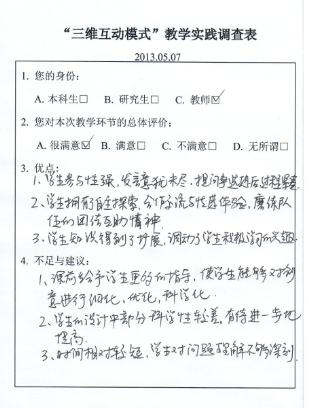 “三维互动模式”教学实践调查表
2013.05.07
1. 您的身份：
A. 本科生□ B. 研究生□ C. 教师☑
2. 您对本次教学环节的总体评价：
A. 很满意☑ B. 满意□ C. 不满意□ D. 无所谓□
3. 优点：
1、学生参与性强，发言意犹未尽，提问
2、学生拥有自主探索、合作交流与性感体验，
任和团结互助精神
3、学生知识得到了扩展，调动了学生积极
4. 不足与建议：
1、课前给予学生更多的指导，使学生能够对创
意进行细化，优化，科学化.
2、学生的设计中部分科学性较差，有待进一步地
提高.
3、时间相对较短，学生对问题理解不够深刻.